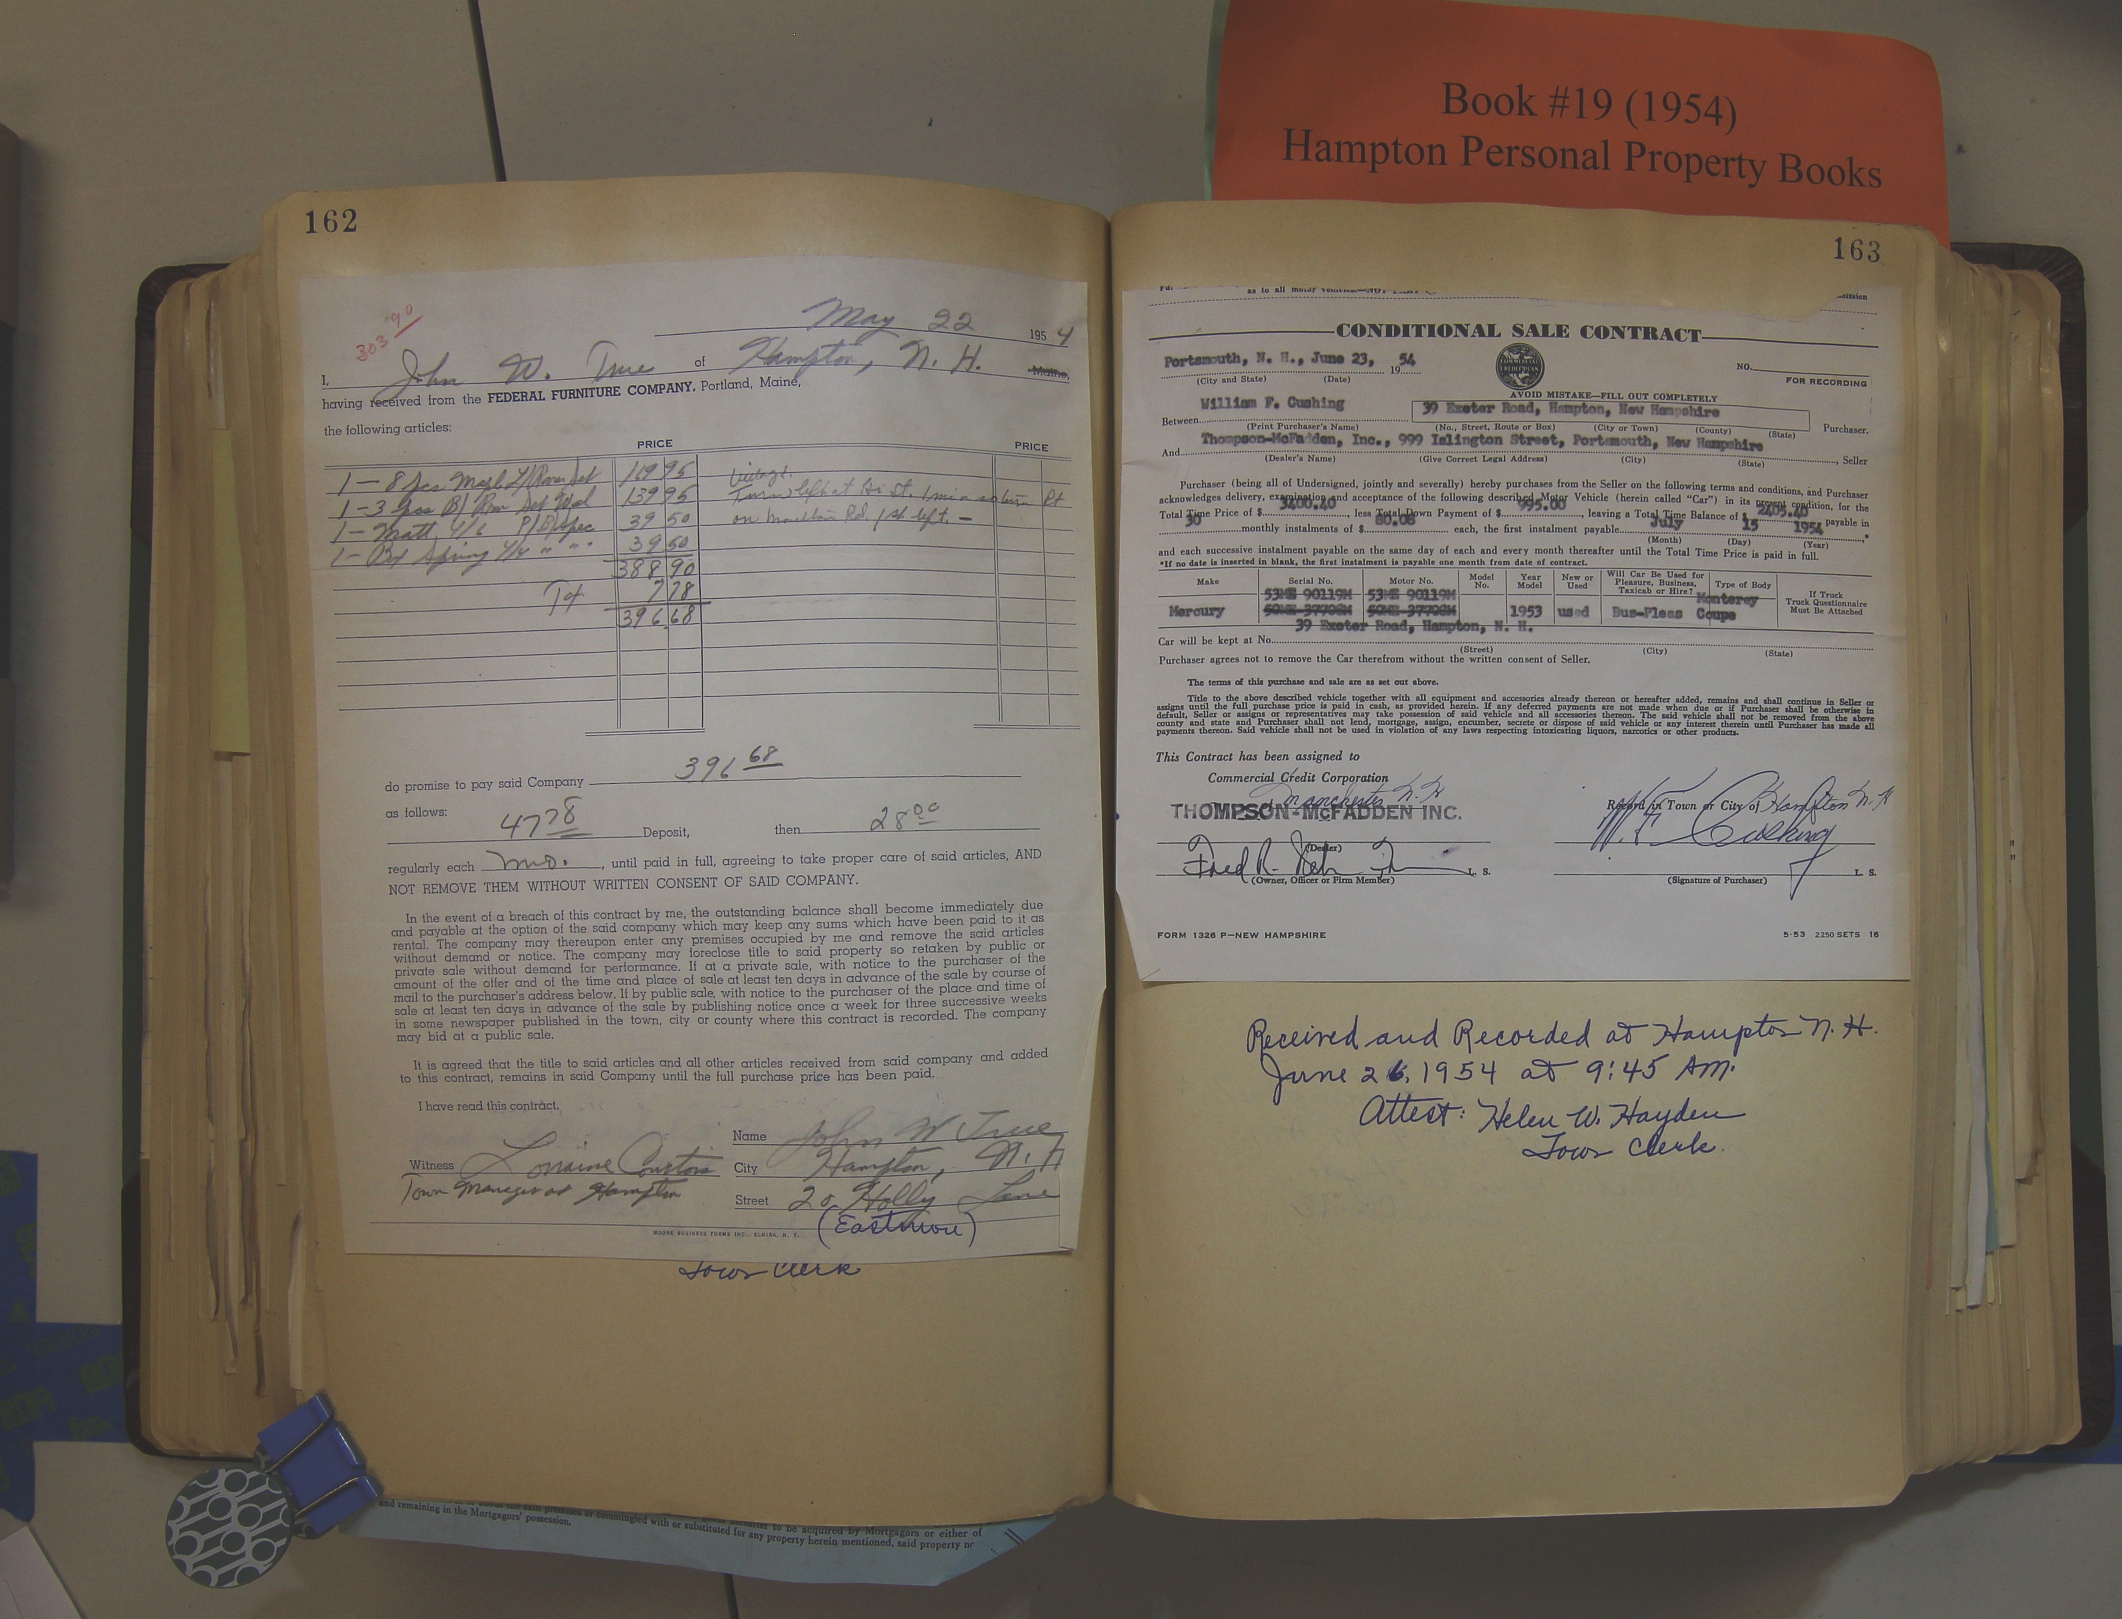 Book #19 (1954)
Hampton Personal Property Books
162
303 90
May 22 1954
I, John W. True of Hampton, N. H. Maine,
having received from the FEDERAL FURNITURE COMPANY, Portland, Maine,
the following articles:
PRICE PRICE
1 - 8 pcs L/Room Set 169 95
1 - 3 pcs B/ Rm Set 139 95 Turn left at Hi St. 1 min turn Rt
1 - Matt 4/6 P/B/Spec 39 50 on Moulton Rd, 1st left. -
1 - Bx Spring 4/6 " " " 39 50
388 90
7 78
396 68
do promise to pay said Company 396 68
as follows:
47 78 Deposit, then 28 00
regularly each mo., until paid in full, agreeing to take proper care of said articles, AND
NOT REMOVE THEM WITHOUT WRITTEN CONSENT OF SAID COMPANY.
In the event of a breach of this contract by me, the outstanding balance shall become immediately due
and payable at the option of the said company which may keep any sums which have been paid to it as
rental. The company may thereupon enter any premises occupied by me and remove the said articles
without demand or notice. The company may foreclose title to said property so retaken by public or
private sale without demand for performance. If at a private sale, with notice to the purchaser of the
amount of the offer and of the time and place of sale at least ten days in advance of the sale by course of
mail to the purchaser's address below. If by public sale, with notice to the purchaser of the place and time of
sale at least ten days in advance of the sale by publishing notice once a week for three successive weeks
in some newspaper published in the town, city or county where this contract is recorded. The company
may bid at a public sale.
It is agreed that the title to said articles and all other articles received from said company and added
to this contract, remains in said Company until the full purchase price has been paid.
I have read this contract.
Name John W True
Witness Lorraine Courtois City Hampton, N. H
Town Manager at Hampton
Street 20 Holly Lane
(Eastmore)
MOORE BUSINESS FORMS INC., ELMIRA, N. Y.
Town Clerk
and remaining in the Mortgagors' possession.
or commingled with or substituted for any property herein mentioned, said property
to be acquired by Mortgagors or either of
163
as to all motor vehicles
CONDITIONAL SALE CONTRACT
Portsmouth, N. H., June 23, 1954
(City and State) (Date)
NO.
FOR RECORDING
AVOID MISTAKE—FILL OUT COMPLETELY
Between William F. Cushing 39 Exeter Road, Hampton, New Hampshire Purchaser.
(Print Purchaser's Name) (No., Street, Route or Box) (City or Town) (County) (State)
And Thompson-McFadden, Inc., 999 Islington Street, Portsmouth, New Hampshire, Seller
(Dealer's Name) (Give Correct Legal Address) (City) (State)
Purchaser (being all of Undersigned, jointly and severally) hereby purchases from the Seller on the following terms and conditions, and Purchaser
acknowledges delivery, examination and acceptance of the following described Motor Vehicle (herein called "Car") in its present condition, for the
Total Time Price of $ 3400.40, less Total Down Payment of $ 995.00, leaving a Total Time Balance of $ 2405.40 payable in
30 monthly instalments of $ 80.08 each, the first instalment payable July 15 1954.*
(Month) (Day) (Year)
and each successive instalment payable on the same day of each and every month thereafter until the Total Time Price is paid in full.
*If no date is inserted in blank, the first instalment is payable one month from date of contract.
Make Serial No. Motor No. Model No. Year Model New or Used Will Car Be Used for Pleasure, Business, Taxicab or Hire? Type of Body If Truck Truck Questionnaire Must Be Attached
53ME 90119M 53ME 90119M Monterey
Mercury 50ME-37708M 50ME-37708M 1953 used Bus-Pleas Coupe
39 Exeter Road, Hampton, N. H.
Car will be kept at No.
(Street) (City) (State)
Purchaser agrees not to remove the Car therefrom without the written consent of Seller.
The terms of this purchase and sale are as set out above.
Title to the above described vehicle together with all equipment and accessories already thereon or hereafter added, remains and shall continue in Seller or
assigns until the full purchase price is paid in cash, as provided herein. If any deferred payments are not made when due or if Purchaser shall be otherwise in
default, Seller or assigns or representatives may take possession of said vehicle and all accessories thereon. The said vehicle shall not be removed from the above
county and state and Purchaser shall not lend, mortgage, assign, encumber, secrete or dispose of said vehicle or any interest therein until Purchaser has made all
payments thereon. Said vehicle shall not be used in violation of any laws respecting intoxicating liquors, narcotics or other products.
This Contract has been assigned to
Commercial Credit Corporation
Manchester N. H
THOMPSON-McFADDEN INC. Record in Town or City of Hampton N. H
(Dealer) W. F. Cushing
Fred R. L. S. L. S.
(Owner, Officer or Firm Member) (Signature of Purchaser)
FORM 1326 P—NEW HAMPSHIRE 5-53 2250 SETS 16
Received and Recorded at Hampton N. H.
June 26, 1954 at 9:45 AM.
Attest: Helen W. Hayden
Town Clerk.